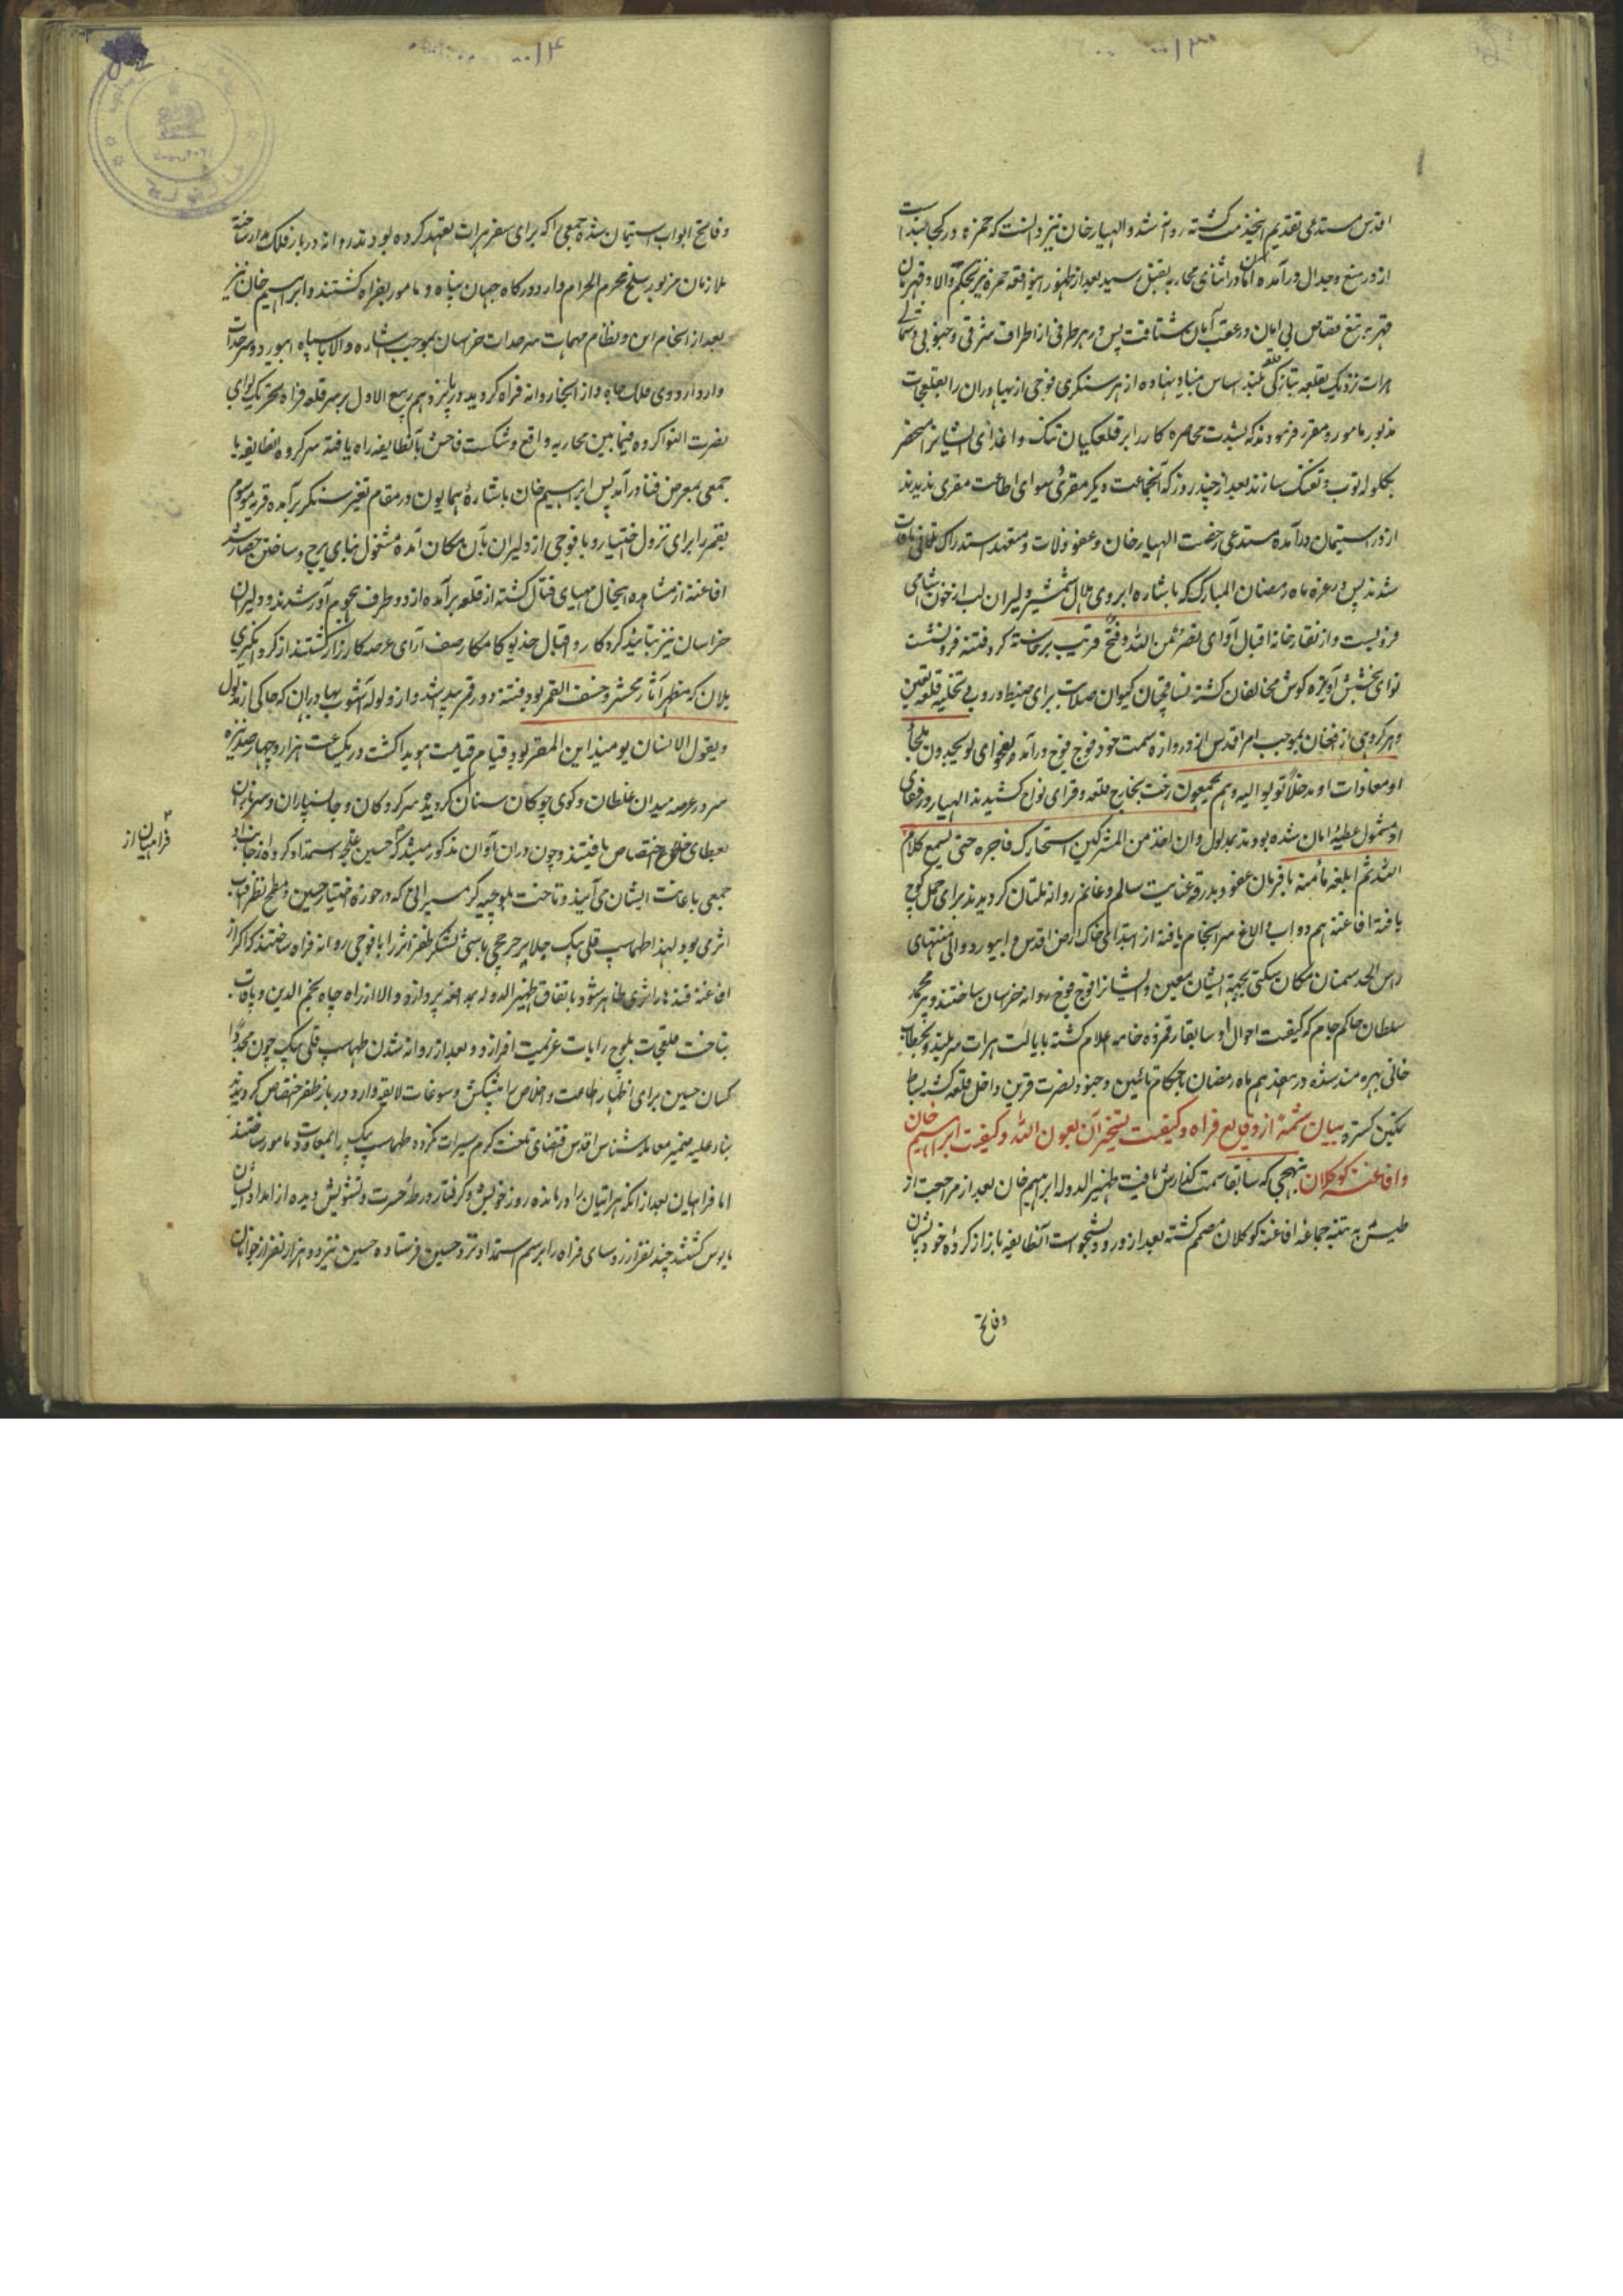 اقدس مستدعی تقدیم اینخدمت گشته روانه شد و الهیار خان نیز دانست که حمزه در کجا
از در منع و جدال درآمده اما در اثنای محاربه بقتل رسید بعد از ظهور این واقعه حمزه نیز بحکم والا و قهرمان
قهر به تیغ قصاص بی امان در عقب آنان شتافت پس در هر طرفی از اطراف شرقی و جنوبی و شمالی
هرات نزدیک بقلعه بتازگی قلعه بلند اساس بنیاد نهاده از هر سنگری فوجی از بهادران را بقلعجات
مذبور مامور و مقرر فرمودند که بشدت محاصره کار را بر قلعگیان تنگ و اغذای ایشانرا منحصر
بگلوله توپ و تفنگ سازند بعد از چند روز که آنجماعت دیگر مقری سوای اطاعت مفری ندیدند
از در استیمان درآمده مستدعی رخصت الهیار خان و عفو زلات و متعهد استدراک تلافی مافات
شدند پس در غره ماه رمضان المبارک که باشاره ابروی هلال شمشیر دلیران لب از خون آشامی
فروبست و از نقارخانه اقبال آوای نصر من الله و فتح قریب برخاسته گرد فتنه فرونشست
نوای بخشش آویزه گوش مخالفان گشته نساقچیان کیوان صلابت برای ضبط دروب و تخلیه قلعه تعیین
و هر گروهی از افغان بموجب امر اقدس از دروازه سمت خود فوج فوج درآمده بفحوای لو یجدون ملجأ
او مغارات او مدخلا لولوا الیه و هم یجمحون رخت بخارج قلعه و قرای نواح کشیدند الهیار و رفقای
او مشمول عطیه امان شده بودند بمدلول و ان احد من المشرکین استجارک فاجره حتی یسمع کلام
الله ثم ابلغه مأمنه با فرمان عفو و بدرقه عنایت سالم و غانم روانه ملتان گردیدند برای حمل کوچ
یافته افاغنه هم دواب و الاغ سرانجام یافته از ابتدای خاک ارض اقدس و ابیورد و الی منتهای
راس الحد سمنان مکان سکنی بجهة ایشان معین و ایشانرا فوج فوج روانه خراسان ساختند و پیر محمد
سلطان حاکم جام که کیفیت احوال او سابقا رقمزده خامه اعلام گشته بایالت هرات سربلند و بخطاب
خانی بهره مند شده در هفدهم ماه رمضان با حکام نائبین و جنود نصرت قرین داخل قلعه گشته بساط
تمکین گسترد بیان شمهٔ از وقایع فراه و کیفیت تسخیر آن بعون الله و کیفیت ابراهیم خان
و افاغنه کوکلان بنهجی که سابقا سمت گذارش یافت ظهیر الدوله ابراهیم خان بعد از مراجعت از
طبس به تنبیه جماعهٔ افاغنه کوکلان مصمم گشته بعد از ورود بشجوات آنطایفه باز از کرده خود پشیمان
و فاتح
و فاتح ابواب استیمان شده جمعی را که برای سفر هرات تعهد کرده بودند روانه دربار فلک مدار ساخته
ملازمان مزبور سلخ محرم الحرام وارد درگاه جهان پناه و مامور بفراه گشتند و ابراهیم خان نیز
بعد از انجام این و نظام مهمات سرحدات خراسان بموجب اشاره والا با سپاه ابیورد و سرحدات
وارد اردوی فلک جاه و از آنجا روانه فراه گردید در پانزدهم ربیع الاول بر سر قلعه فراه بتحریک لوای
نصرت التوا کرده فیما بین محاربه واقع و شکست فاحش بآنطایفه راه یافته سرکرده آنطایفه با
جمعی بمعرض فنا درآمد پس ابراهیم خان باشارهٔ همایون در مقام تغییر سنگر برآمده قریه موسوم
بقمر را برای نزول اختیار و با فوجی از دلیران بآن مکان آمده مشغول بنای برج و ساختن حصار شد
افاغنه از مشاهده اینحال مهیای قتال گشته از قلعه برآمده از دو طرف هجوم آور شدند و دلیران
خراسان نیز بتائید کردگار و اقبال خدیو کامکار صف آرای عرصه کارزار گشتند از گرد انگیزی
یلان که مظهر آثار محشر و خسف القمر بود فتنه دور قمر پدید شد و از ولوله آشوب بهادران که حاکی از مدلول
و یقول الانسان یومئذ این المفر بود قیام قیامت هویدا گشت در یکساعت هزار و چهار صد نیزه
سر در عرصه میدان غلطان و گوی چوگان سنان گردیده سرکردگان و جانسپاران و سربازان
بعطای خلاع اختصاص یافتند و چون در آن آوان مذکور میشد که حسین غلیجه استمداد کرده از جانب او
۲ فراهیان از
جمعی باعانت ایشان می آیند و تاخت بلوچیه گرمسیر الی که در حوزه اختیار حسین و مطمح نظر
اثر می بود لهذا طهماسب قلی بیک جلایر چرخچی باشی لشکر ظفر اثر را با فوجی روانه فراه ساختند که اگر از
افاغنه قندهار اثری ظاهر شود باتفاق ظهیر الدوله بمدافعه پردازد و الا از راه چاه نجم الدین و
بتاخت قلعجات بلوچ رایات عزیمت افرازد و بعد از روانه شدن طهماسب قلی بیک چون مجددا
کسان حسین برای اظهار اطاعت و اخلاص با پیشکش و سوغات لایقه وارد دربار ظفر اختصاص گردیدند
بناء علیه ضمیر معامله شناس اقدس اقتضای تاخت گرمسیرات نکرده طهماسب بیک را بمعاودت مامور ساختند
اما فراهیان بعد از انکه هراتیان را درمانده روز خویش و گرفتار ورطهٔ حسرت و تشویش دیده از امداد ایشان
مایوس گشتند چند نفر از روسای فراه را برسم استمداد نزد حسین فرستاده حسین نیز دو هزار نفر از جوانان